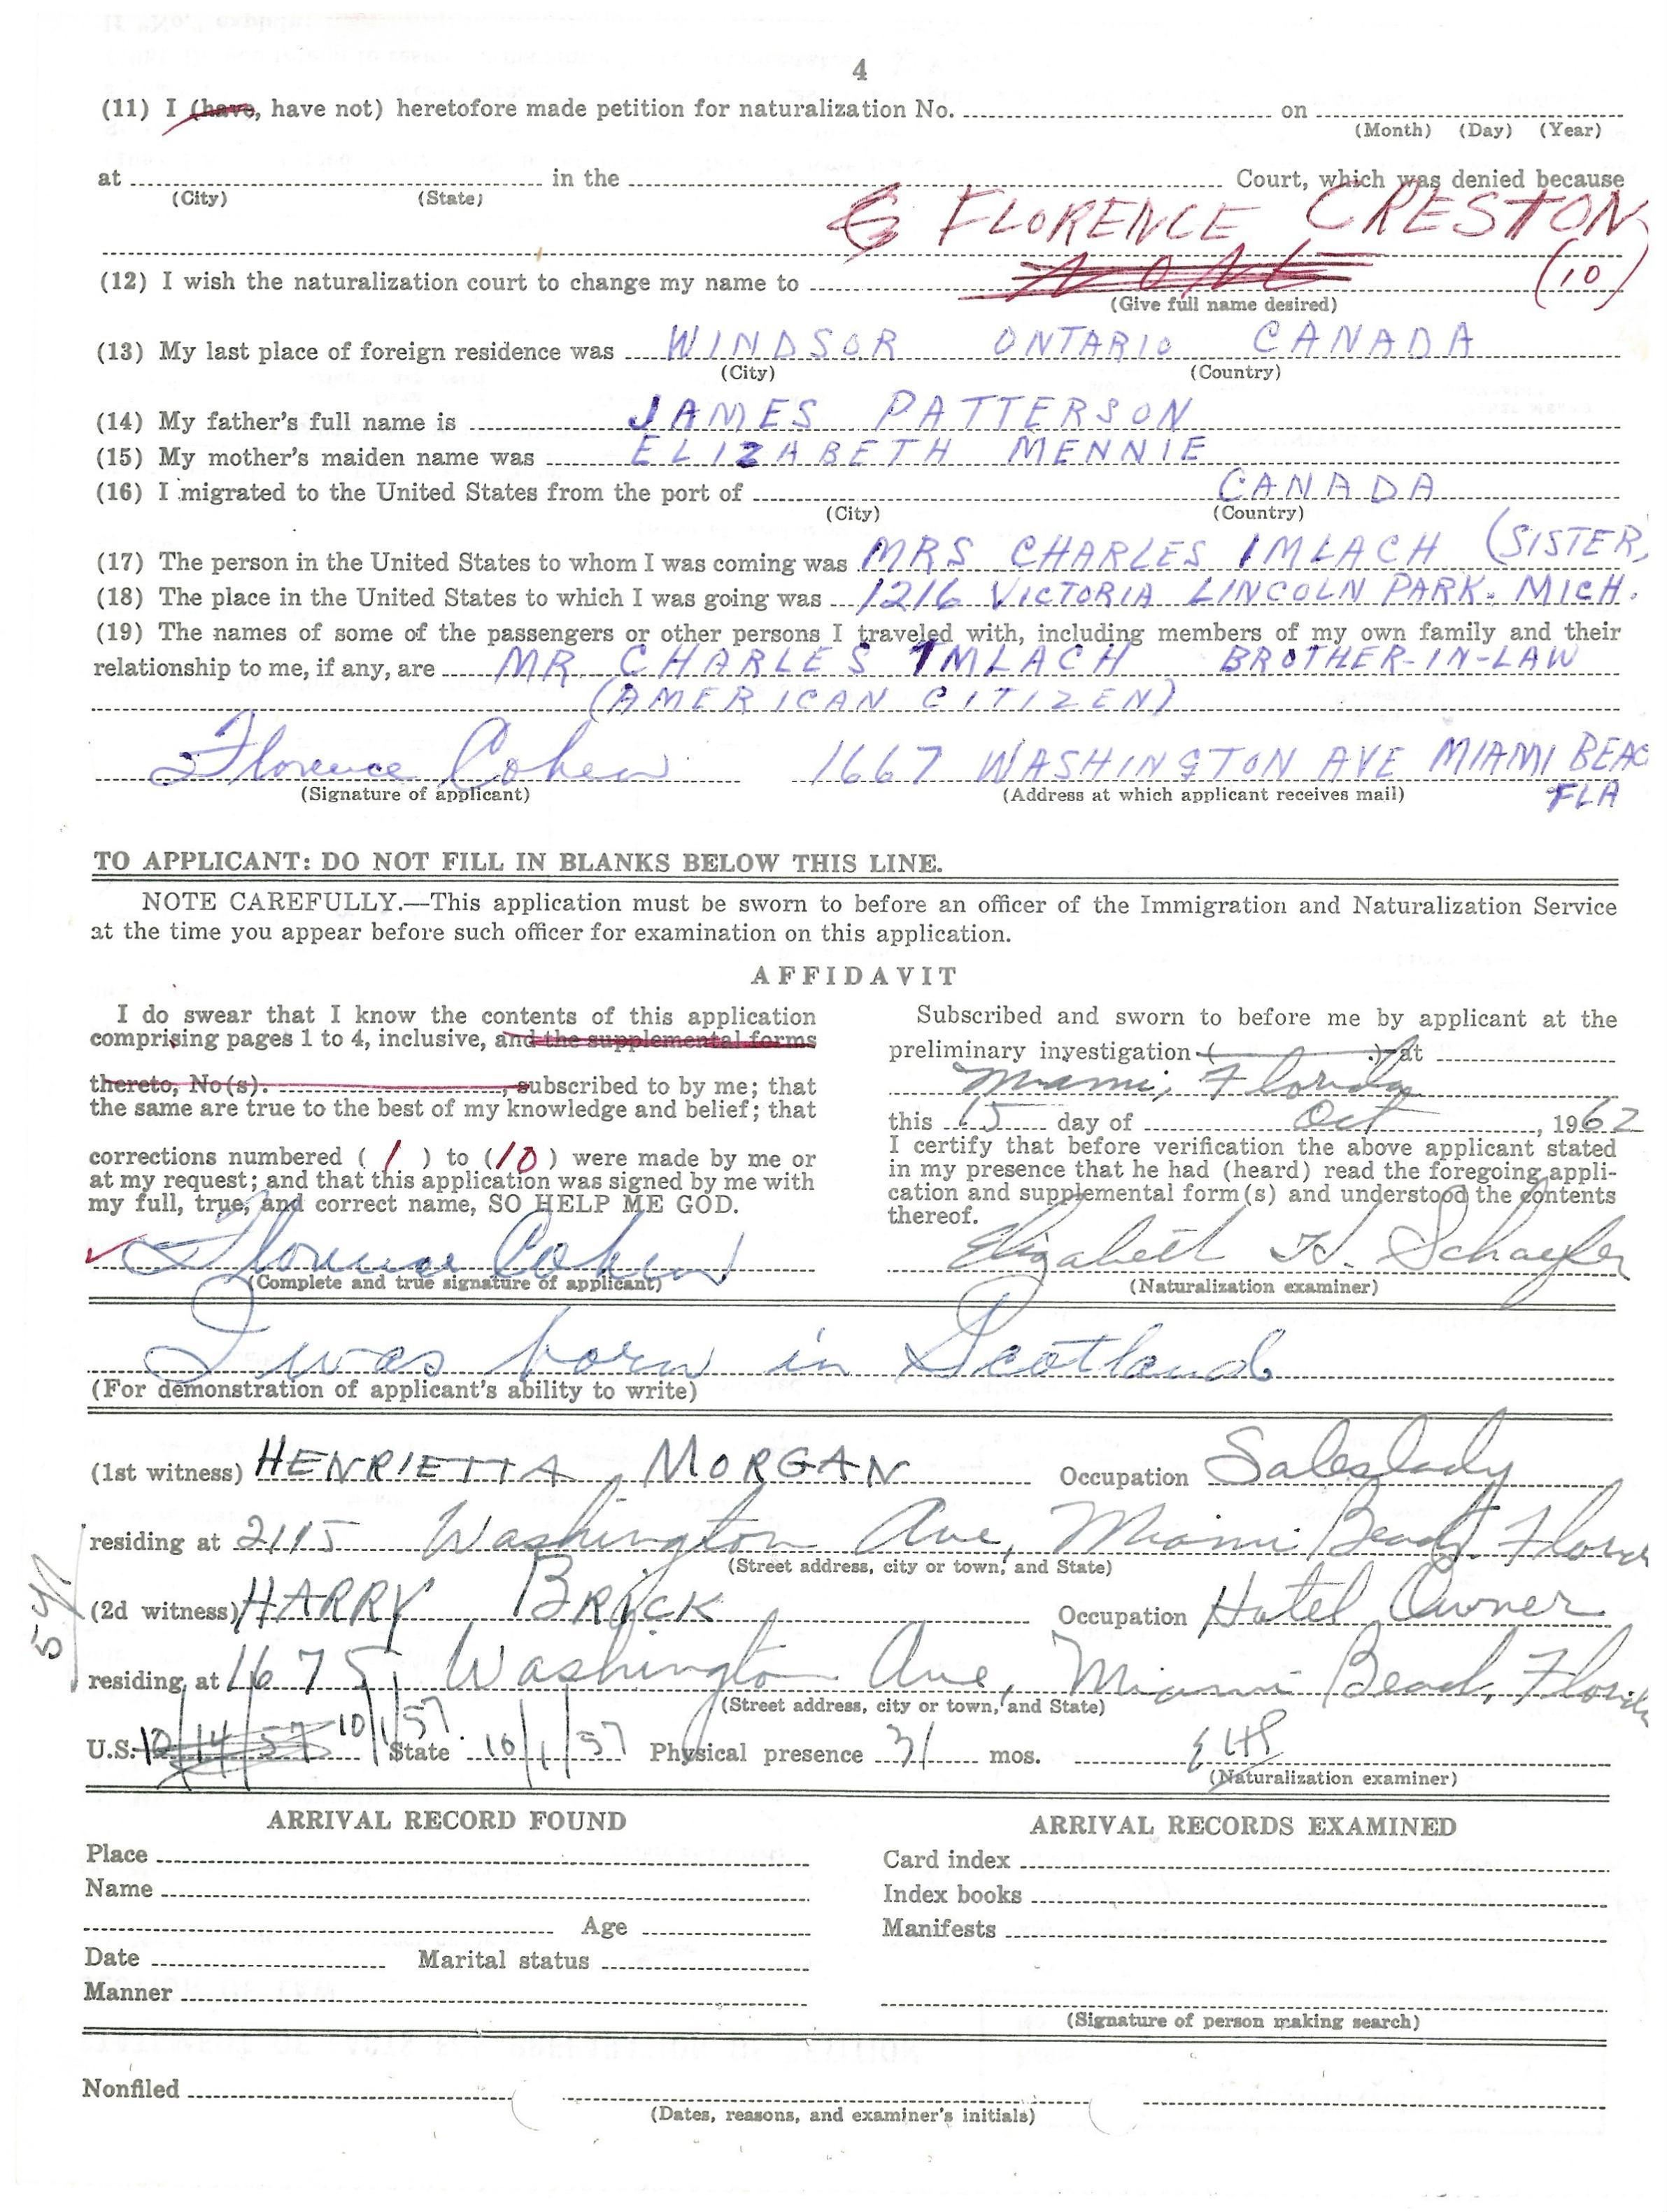 4
(11) I (have, have not) heretofore made petition for naturalization No. on
(Month) (Day) (Year)
at in the Court, which was denied because
(City) (State)
FLORENCE CRESTON
(12) I wish the naturalization court to change my name to NONE (10)
(Give full name desired)
(13) My last place of foreign residence was WINDSOR ONTARIO CANADA
(City) (Country)
(14) My father's full name is JAMES PATTERSON
(15) My mother's maiden name was ELIZABETH MENNIE
(16) I migrated to the United States from the port of CANADA
(City) (Country)
(17) The person in the United States to whom I was coming was MRS CHARLES IMLACH (SISTER)
(18) The place in the United States to which I was going was 1216 VICTORIA LINCOLN PARK. MICH.
(19) The names of some of the passengers or other persons I traveled with, including members of my own family and their
relationship to me, if any, are MR CHARLES IMLACH BROTHER-IN-LAW
(AMERICAN CITIZEN)
Florence Cohen 1667 WASHINGTON AVE MIAMI BEAC
(Signature of applicant) (Address at which applicant receives mail) FLA
TO APPLICANT: DO NOT FILL IN BLANKS BELOW THIS LINE.
NOTE CAREFULLY.—This application must be sworn to before an officer of the Immigration and Naturalization Service
at the time you appear before such officer for examination on this application.
AFFIDAVIT
I do swear that I know the contents of this application
comprising pages 1 to 4, inclusive, and the supplemental forms
thereto, No(s). , subscribed to by me; that
the same are true to the best of my knowledge and belief; that
corrections numbered ( 1 ) to (10) were made by me or
at my request; and that this application was signed by me with
my full, true, and correct name, SO HELP ME GOD.
Florence Cohen
(Complete and true signature of applicant)
Subscribed and sworn to before me by applicant at the
preliminary investigation ( ) at
Miami, Florida
this 15 day of Oct, 1962
I certify that before verification the above applicant stated
in my presence that he had (heard) read the foregoing appli-
cation and supplemental form(s) and understood the contents
thereof.
Elizabeth H. Schaefer
(Naturalization examiner)
I was born in Scotland
(For demonstration of applicant's ability to write)
(1st witness) HENRIETTA MORGAN Occupation Saleslady
residing at 2115 Washington Ave, Miami Beach, Florida
(Street address, city or town, and State)
(2d witness) HARRY BRICK Occupation Hotel Owner
residing at 1675 Washington Ave, Miami Beach, Florida
(Street address, city or town, and State)
U.S. 10/14/57 10/1/57 State 10/1/57 Physical presence 31 mos. EHS
(Naturalization examiner)
ARRIVAL RECORD FOUND
Place
Name
Age
Date Marital status
Manner
ARRIVAL RECORDS EXAMINED
Card index
Index books
Manifests
(Signature of person making search)
Nonfiled
(Dates, reasons, and examiner's initials)